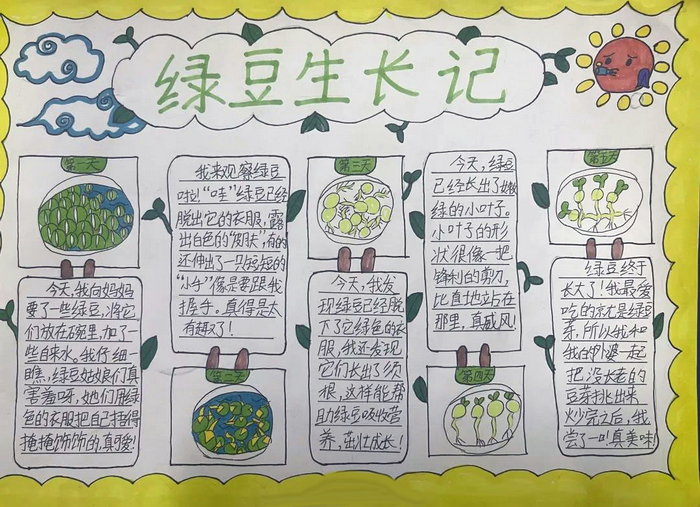 绿豆生长记
第一天
今天,我向妈妈
要了一些绿豆,将它
们放在碗里,加了一
些自来水。我仔细一
瞧,绿豆姑娘们真
害羞呀,她们用绿
色的衣服把自己捂得
掩掩饰饰的,真可爱!
我来观察绿豆
啦!“哇”绿豆已经
脱出它的衣服,露
出白色的“皮肤”,有的
还伸出了一只短短的
“小手”像是要跟我
握手。真得是太
有趣了!
第二天
第三天
今天,我发
现绿豆已经脱
下了它绿色的衣
服,我还发现
它们长出了须
根,这样能帮
助绿豆吸收营
养,茁壮成长!
今天,绿豆
已经长出了嫩
绿的小叶子。
小叶子的形
状很像一把
锋利的剪刀,
比直地站在
那里,真威风!
第四天
第五天
绿豆终于
长大了!我最爱
吃的就是绿豆
所以我和
我的外婆一起
把没长老的
豆芽挑出来
炒完之后,我
尝了一口真美味!